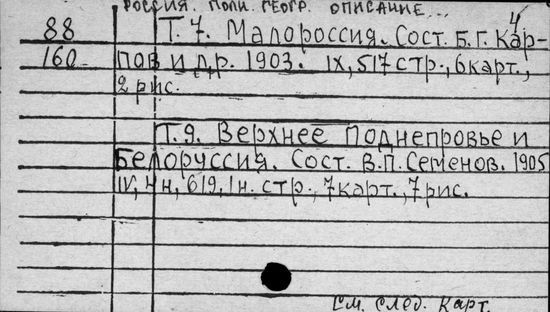 РОССИЯ. ПОЛН. ГЕОГР. ОПИСАНИЕ...
4
88 Т. 7. Малороссия. Сост. Б.Г. Кар-
160 пов и др. 1903. IX, 517 стр., 6 карт.,
2 рис.
Т. 9. Верхнее Поднепровье и
Белоруссия. Сост. В.П. Семенов. 1905
IV, 4 н, 619, 1 н. стр., 7 карт., 7 рис.
См. след. карт.